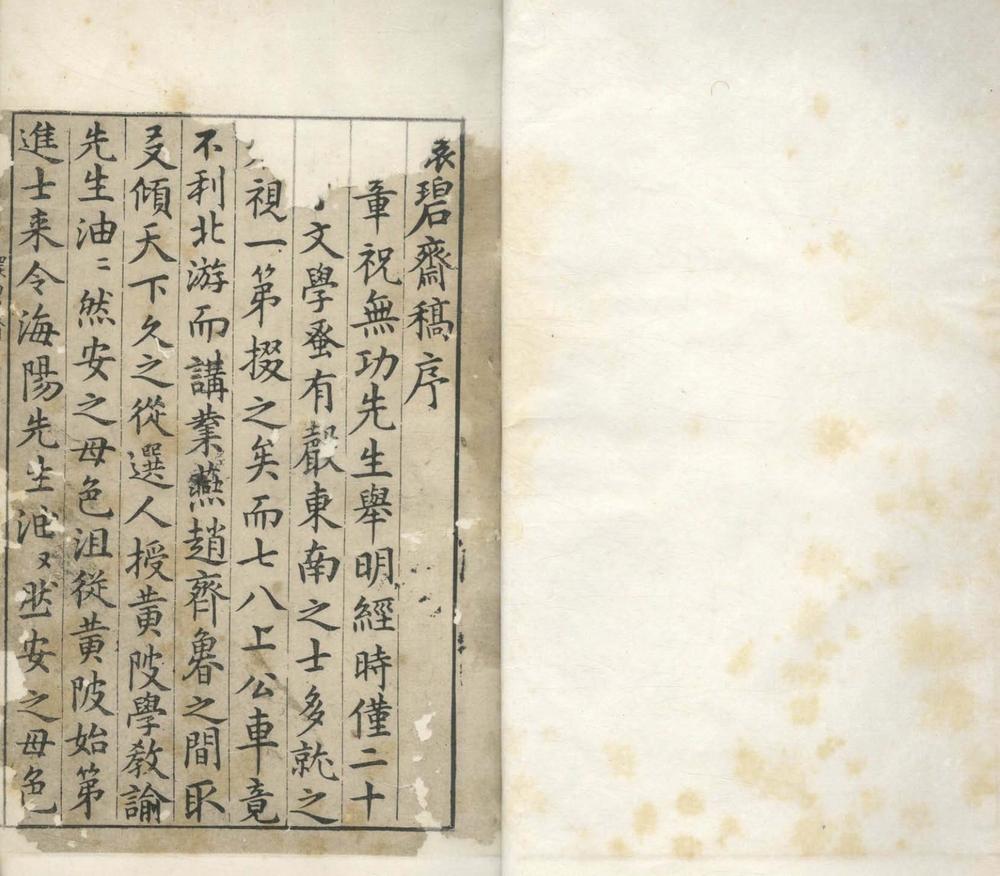 碧齋稿序
章祝無功先生舉明經時僅二十
文學蚤有聲東南之士多就之
視一第掇之矣而七八上公車竟
不利北游而講業燕趙齊魯之間取
友傾天下久之從選人授黃陂學教諭
先生油〻然安之毋色沮從黃陂始第
進士来令海陽先生油又然安之毋色